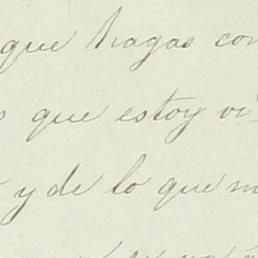 que hagas con
que estoy vi
y de lo que m